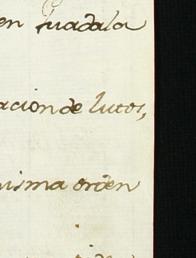 en Guadala
acion de lutos,
isma orden